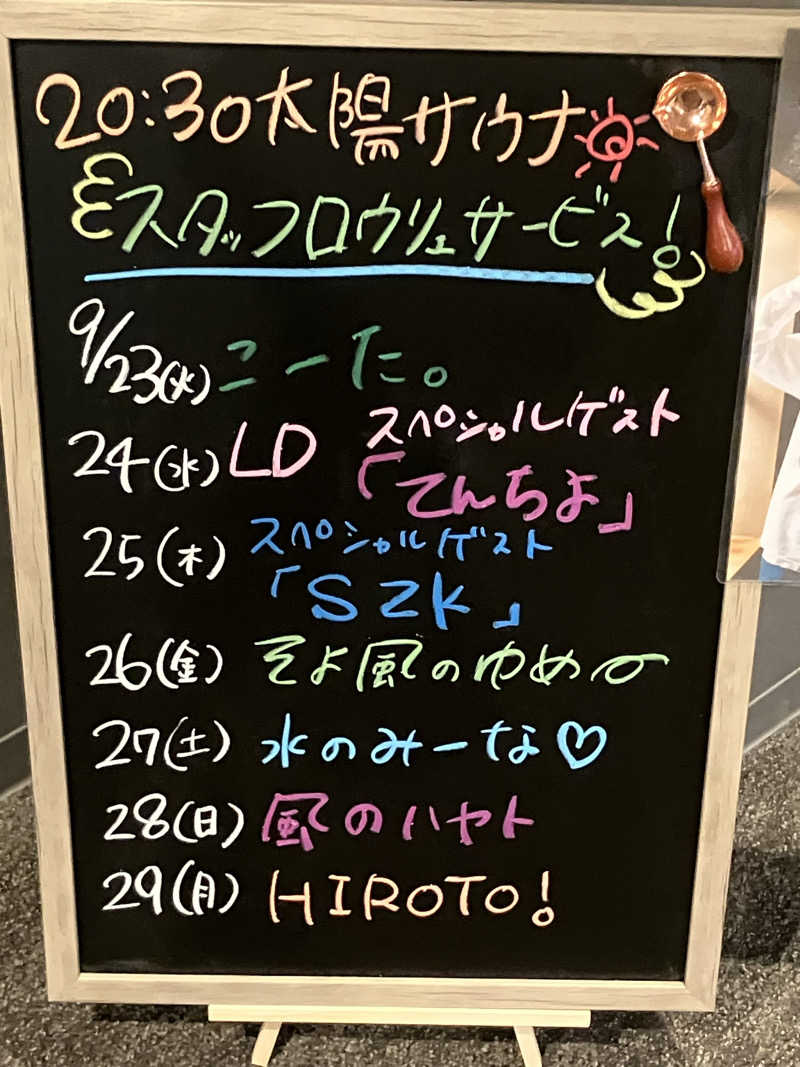 20:30太陽サウナ
スタッフロウリュサービス!
9/23(火)こーた。
24(水)LD スペシャルゲスト
「てんちよ」
25(木)スペシャルゲスト
「SZK」
26(金)そよ風のゆめ
27(土)水のみーな♡
28(日)風のハヤト
29(月)HIROTO!